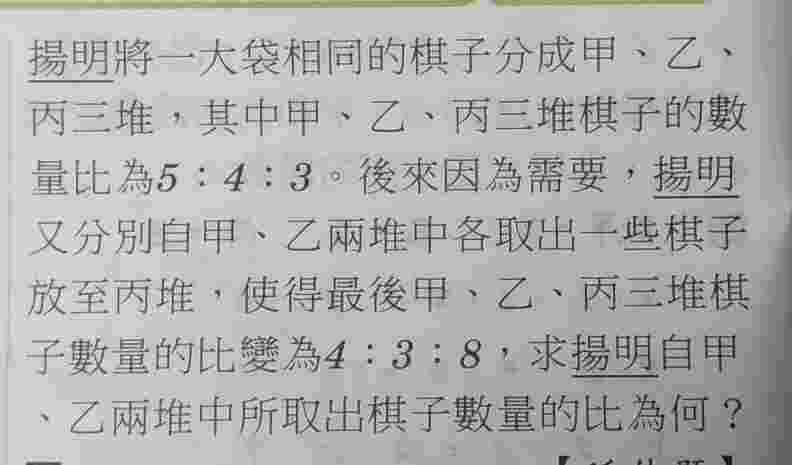 揚明將一大袋相同的棋子分成甲、乙、
丙三堆，其中甲、乙、丙三堆棋子的數
量比為5：4：3。後來因為需要，揚明
又分別自甲、乙兩堆中各取出一些棋子
放至丙堆，使得最後甲、乙、丙三堆棋
子數量的比變為4：3：8，求揚明自甲
、乙兩堆中所取出棋子數量的比為何？